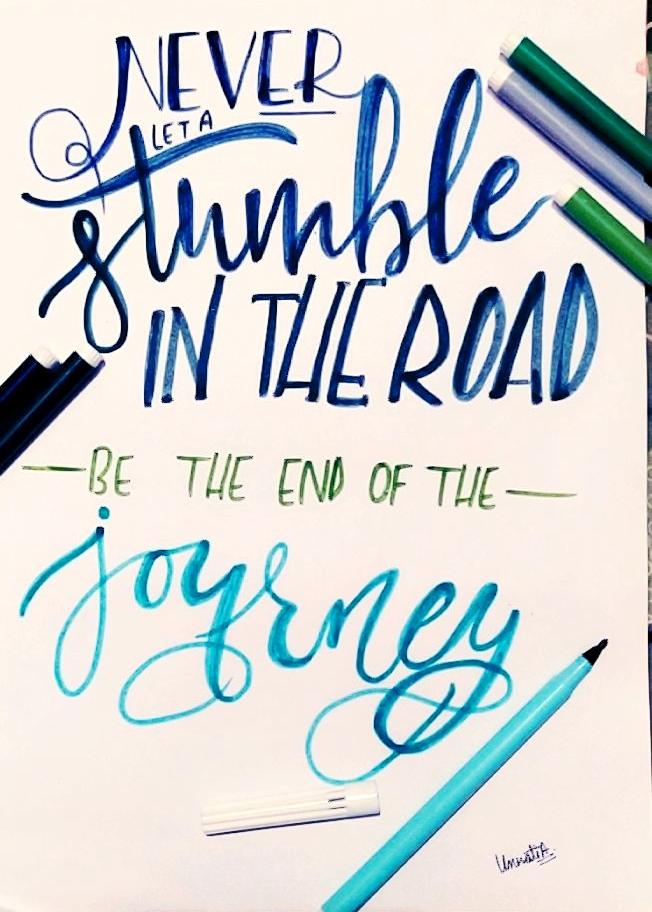 NEVER
LET A
stumble
IN THE ROAD
BE THE END OF THE
journey